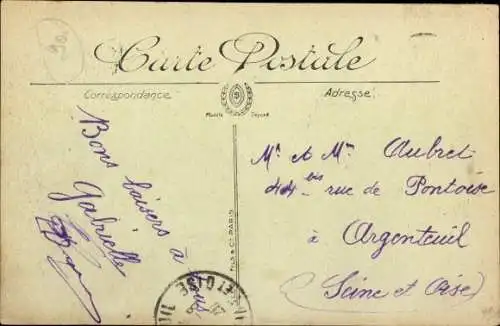 Carte Postale
Correspondance
Adresse
Modèle Déposé
Bons baisers à tous
Gabrielle
Mr et Mme Aubret
44 bis rue de Pontoise
à
Argenteuil
(Seine et Oise)
FILS & Cie PARIS
ET OISE